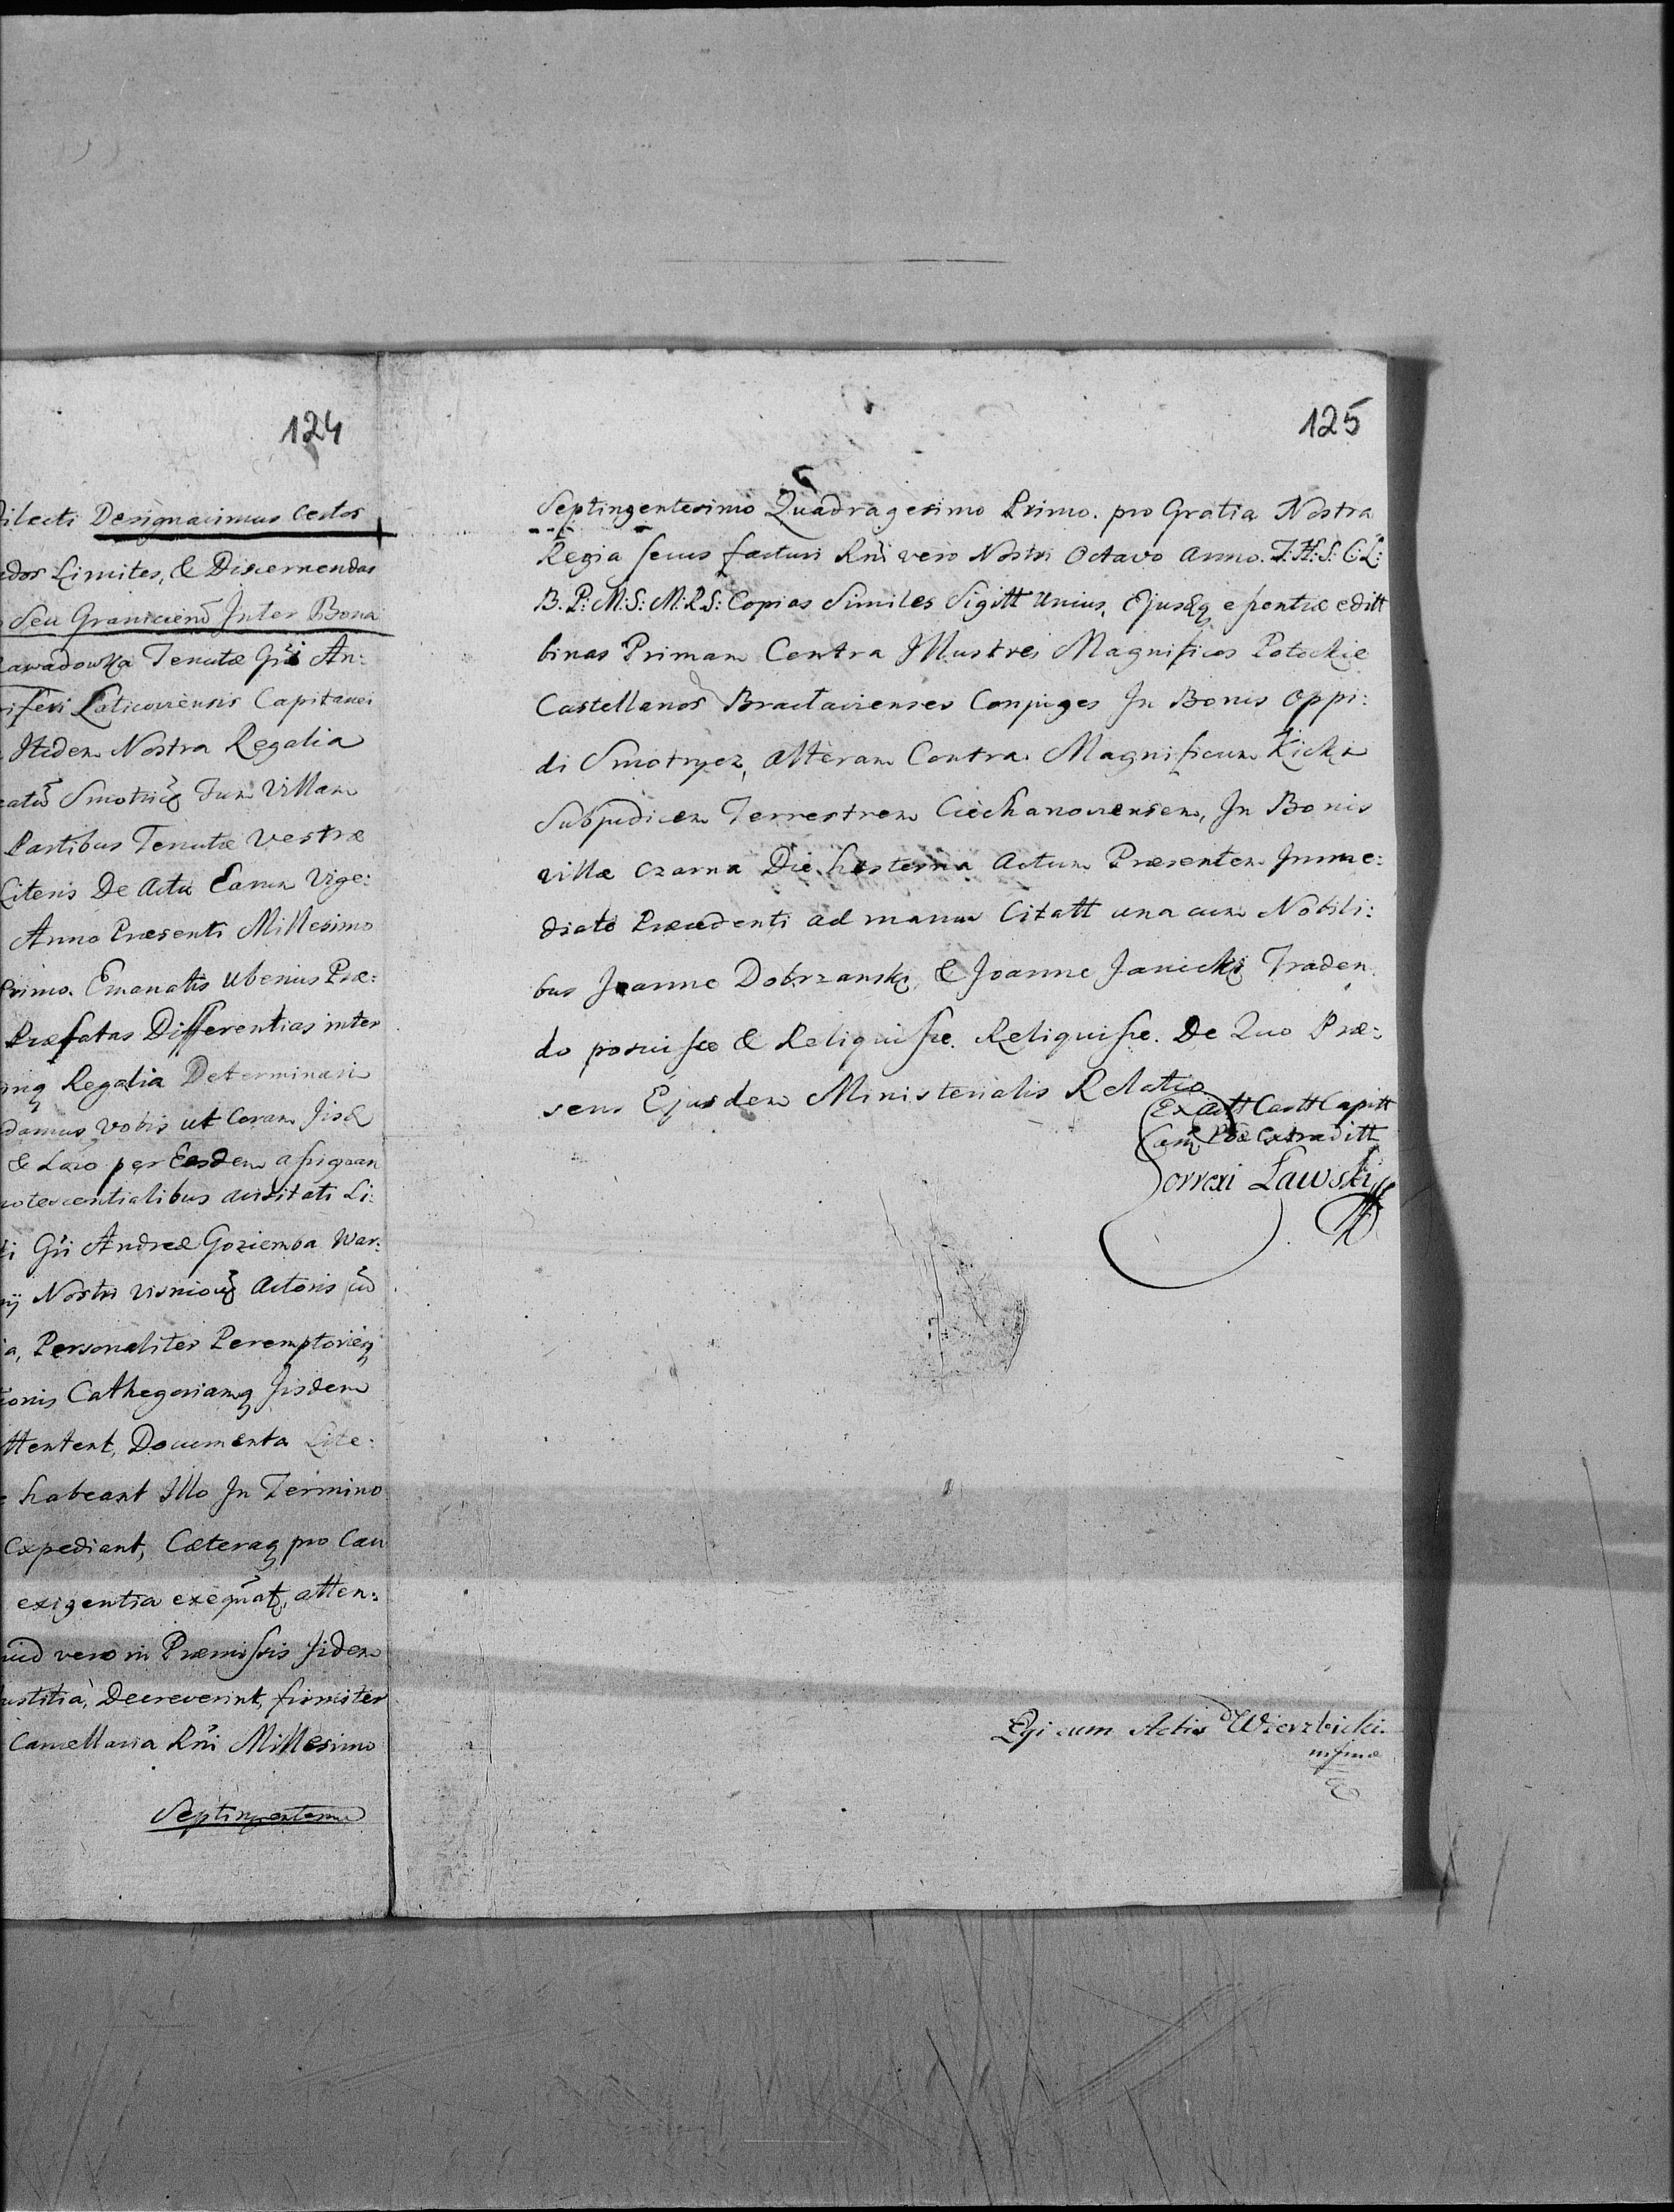 124
Dilecti Designavimus certos
Limites, & Discernendas
Seu Graniciend Inter Bona
Zawadowka Tenutæ Gsi An:
Laticoviensis Capitanei
Itidem Nostra Regalia
Tum Villam
Partibus Tenutæ Vestræ
Literis De Actu Earum Vige:
Anno Præsenti Millesimo
Primo. Emanatis Uberius Præ:
Præfatas Differentias inter
Regalia Determinari
damus vobis ut Coram Jisd
& Loco per Eosdem assignan
Li:
Gsi Andreæ Goziemba War:
Nostri Actoris
Personaliter Peremptorieq
Cathegoriamq Jisdem
Documenta Lite:
habeant Illo In Termino
Expediant, Cæteraq pro Cau
exigentia atten:
vero in Præmissis Jidem
Justitia, Decreverint, firmiter
Cancellaria Rni Millesimo
Septingentesimo
125
Septingentesimo Quadragesimo Primo. pro Gratia Nostra
Regia secus facturi Rni vero Nostri Octavo Anno. J:H:S:C:L:
B.P:M:S:M:R.S: Copias Similes Sigitt Unius, Ejusdq e editt
binas Primam Contra Illustres Magnificos Potockie
Castellanos Braclavienses Conjuges In Bonis Oppi:
di Smotrycz, Alteram Contra Magnificum Kicki
Subjudicem Terrestrem Ciechanoviensem, In Bonis
villæ Czarna Die hesterna Actum Præsentem Imme:
diate Præcedenti ad manus Citatt una cum Nobili:
bus Joanne Dobrzanski, & Joanne Janicki Traden
do posuisse & Reliquisse. Reliquisse. De Quo Præ:
sens Ejusdem Ministerialis Relatio
Ex Actt Castt Capitt
Cam Pod Extraditt
Correxi Lawski
Egi cum Actis Wierzbicki